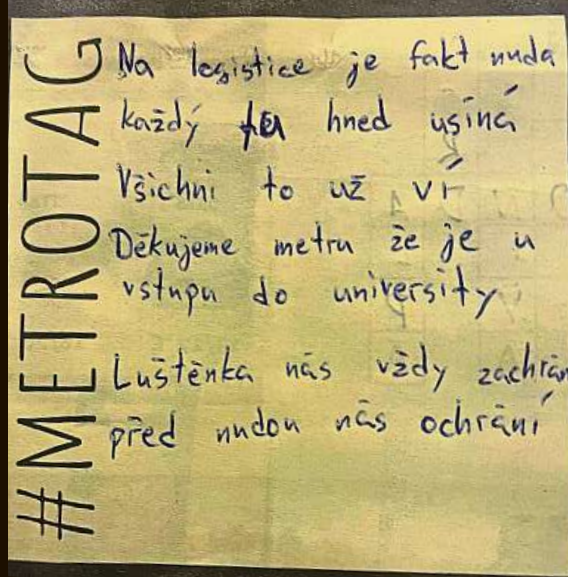 #METROTAG
Na logistice je fakt nuda
každý tu hned usíná
Všichni to už ví
Děkujeme metru že je u
vstupu do university
Luštěnka nás vždy zachrán
před nudou nás ochrání